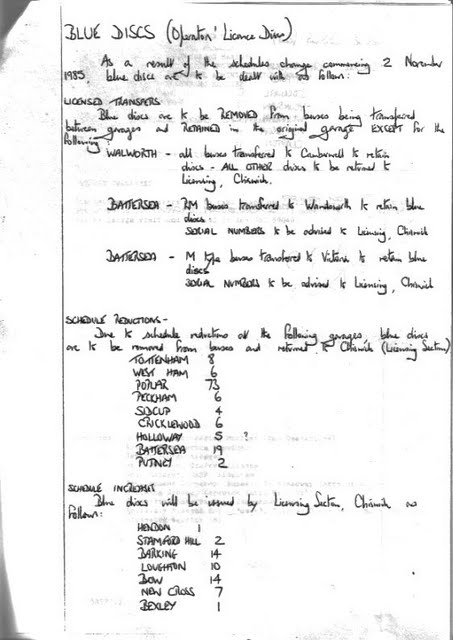 BLUE DISCS (Operators' Licence Discs)
As a result of the schedules change commencing 2 November
1985, blue discs are to be dealt with as follows:
LICENSED TRANSFERS
Blue discs are to be REMOVED from buses being transferred
between garages and RETAINED in the original garage EXCEPT for the
following:
WALWORTH - all buses transferred to Camberwell to retain
discs - ALL OTHER discs to be returned to
Licensing, Chiswick.
BATTERSEA - RM buses transferred to Wandsworth to retain blue
discs
SERIAL NUMBERS to be advised to Licensing, Chiswick
BATTERSEA - M type buses transferred to Victoria to retain blue
discs
SERIAL NUMBERS to be advised to Licensing, Chiswick
SCHEDULE REDUCTIONS -
Due to schedule reductions at the following garages, blue discs
are to be removed from buses and returned to Chiswick (Licensing Section)
TOTTENHAM 8
WEST HAM 6
POPLAR 73
PECKHAM 6
SIDCUP 4
CRICKLEWOOD 6
HOLLOWAY 5 ?
BATTERSEA 19
PUTNEY 2
SCHEDULE INCREASES
Blue discs will be issued by Licensing Section, Chiswick as
follows:
HENDON 1
STAMFORD HILL 2
BARKING 14
LOUGHTON 10
BOW 14
NEW CROSS 7
BEXLEY 1